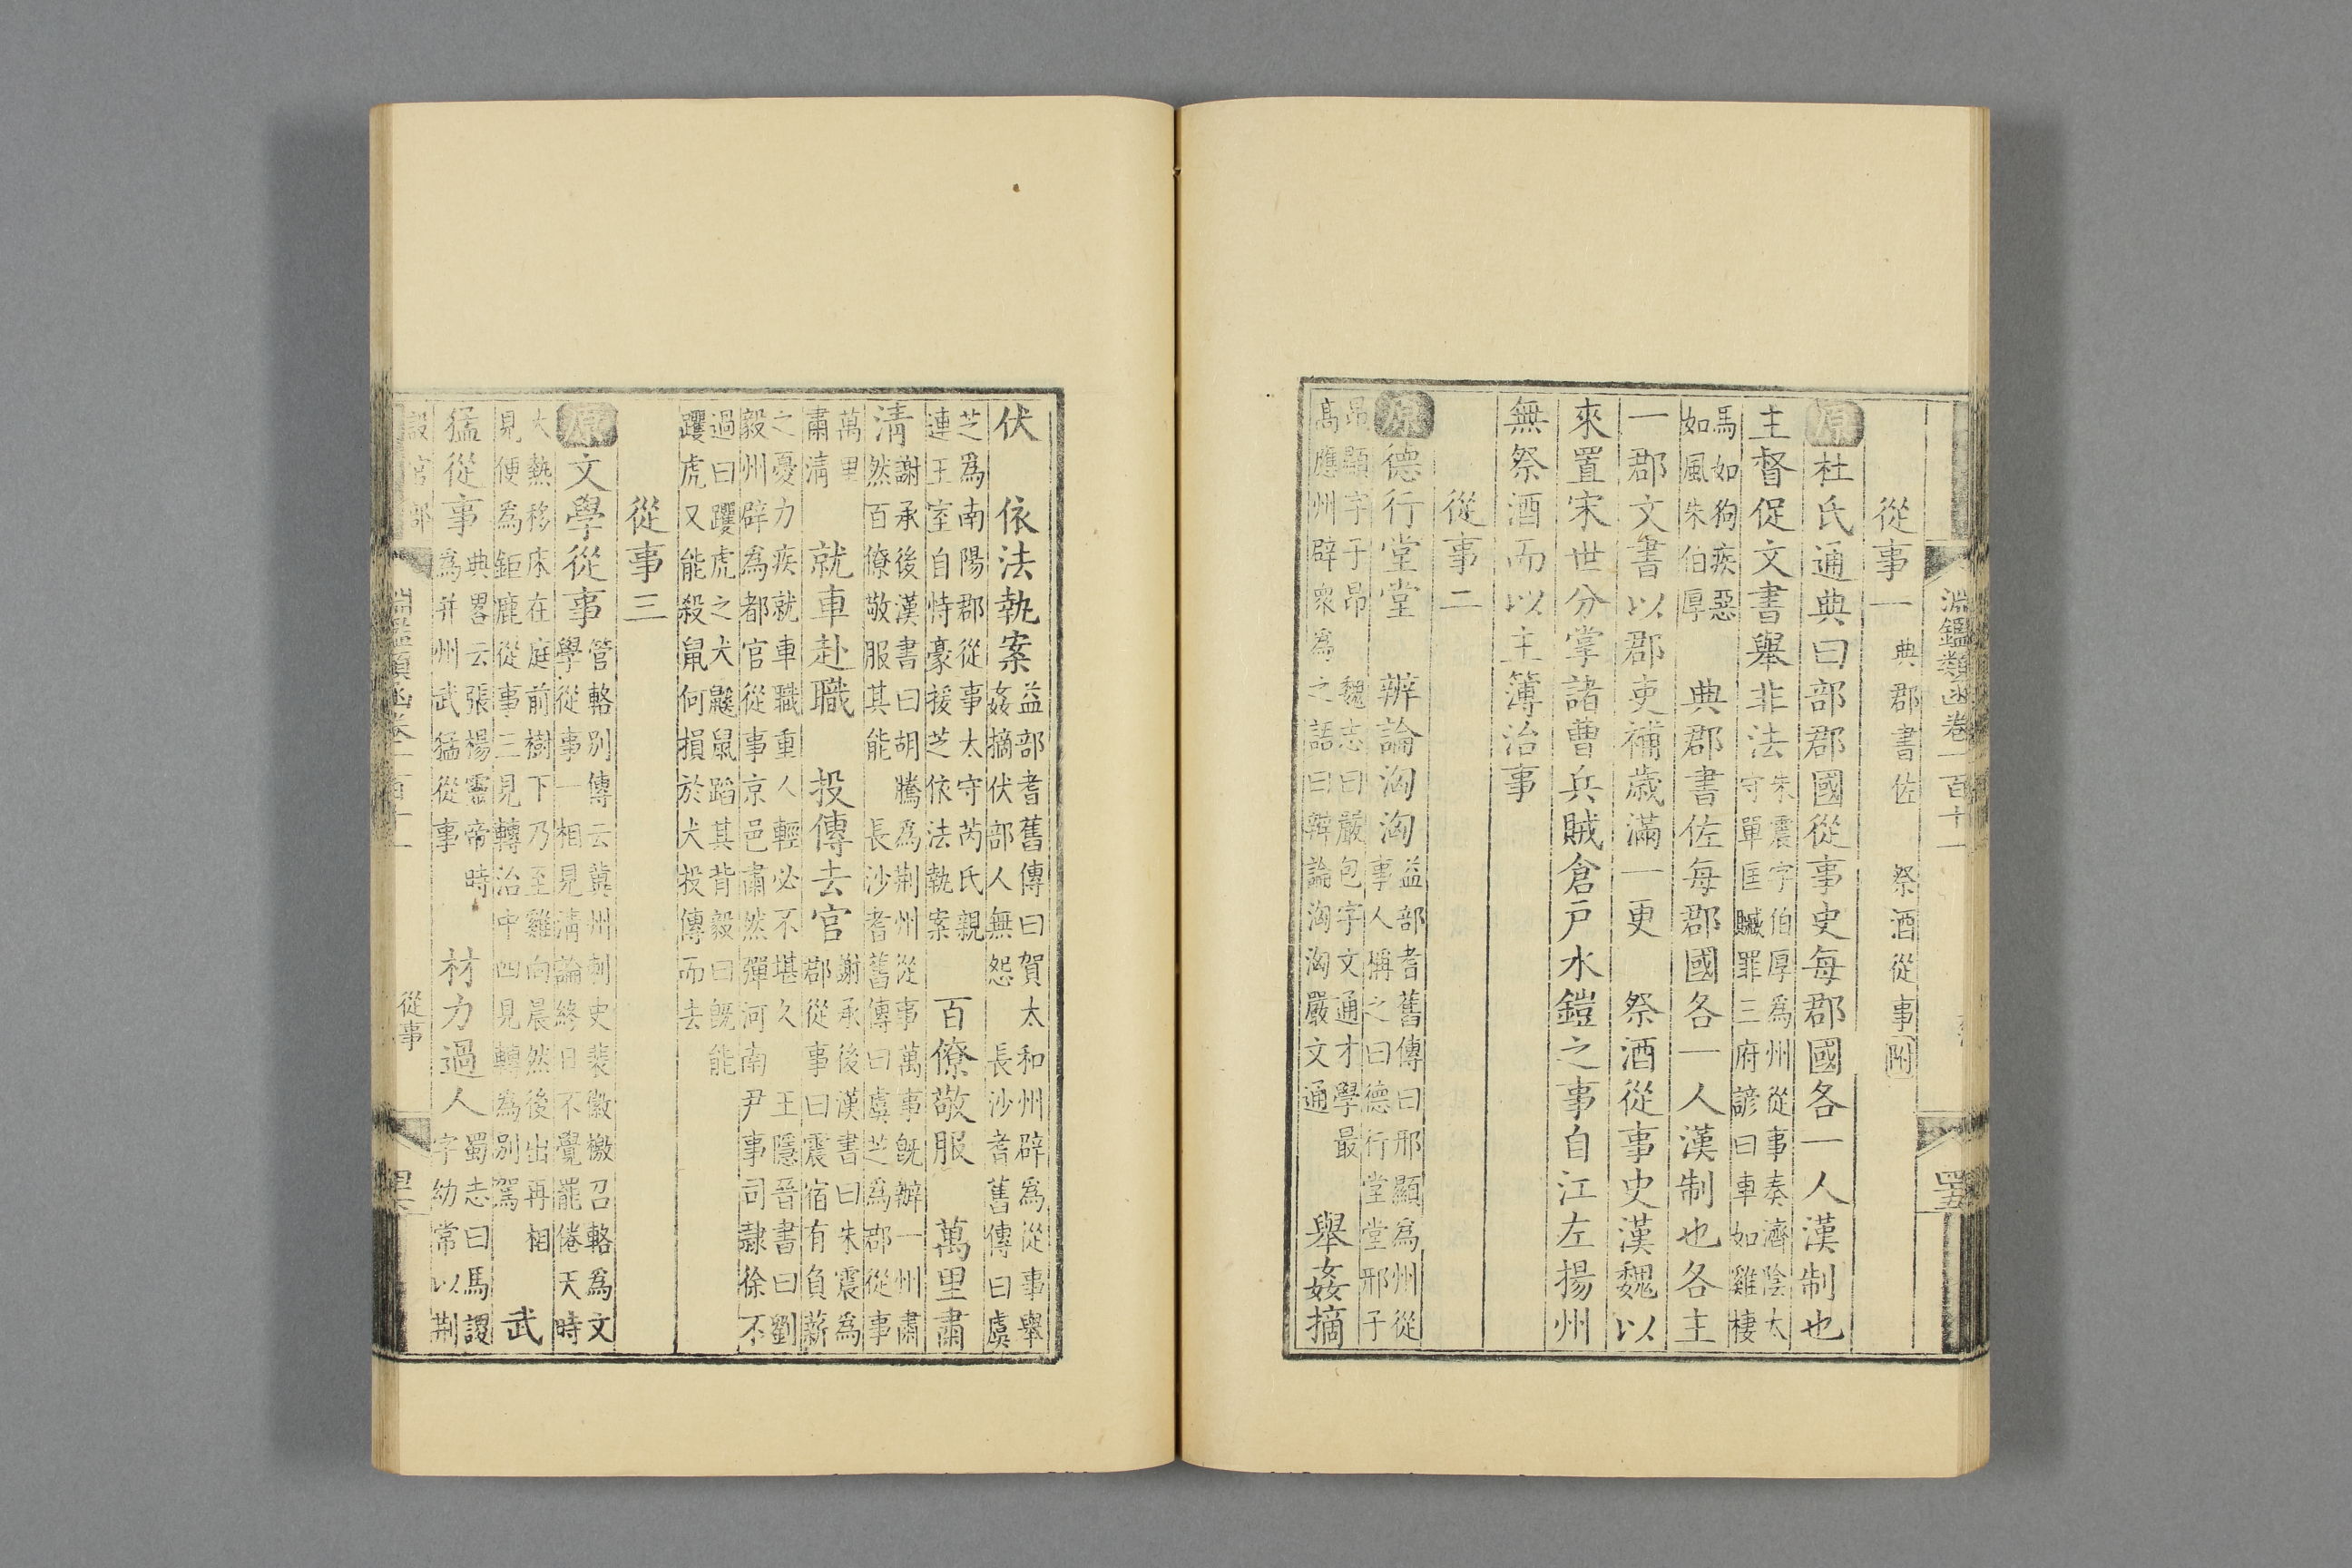 淵鑑類函卷一百十一
四五
從事一 典郡書佐 祭酒從事附
原杜氏通典曰部郡國從事史每郡國各一人漢制也
主督促文書舉非法朱震字伯厚為州從事奏濟陰太
守單匡贓罪三府諺曰車如雞棲
馬如狗疾惡
如風朱伯厚 典郡書佐每郡國各一人漢制也各主
一郡文書以郡吏補歲滿一更 祭酒從事史漢魏以
來置宋世分掌諸曹兵賊倉戶水鎧之事自江左揚州
無祭酒而以主簿治事
從事二
原德行堂堂 辨論洶洶益部耆舊傳曰邢顯為州從
事人稱之曰德行堂堂邢子
昂顯字子昂 魏志曰嚴包字文通才學最
高應州辟衆為之語曰辨論洶洶嚴文通 舉姦摘
伏 依法執案益部耆舊傳曰賀太和州辟為從事舉
姦摘伏部人無怨 長沙耆舊傳曰虞
芝為南陽郡從事太守芮氏親
連王室自恃豪援芝依法執案 百僚敬服 萬里肅
清謝承後漢書曰胡騰為荆州從事萬事旣辦一州肅
然百僚敬服其能 長沙耆舊傳曰虞芝為郡從事
萬里
肅清 就車赴職 投傳去官謝承後漢書曰朱震為
郡從事曰震宿有負薪
之憂力疾就車職重人輕必不堪久 王隱晉書曰劉
毅州辟為都官從事京邑肅然彈河南尹事司隸徐不
過曰玃虎之犬鼷鼠蹈其背毅曰旣能
玃虎又能殺鼠何損於犬投傳而去
從事三
原文學從事管輅别傳云冀州刺史裴徽檄召輅為文
學從事一相見清論終日不覺罷倦天時
大熱移床在庭前樹下乃至雞向晨然後出再相
見便為鉅鹿從事三見轉治中四見轉為別駕 武
猛從事典畧云張楊靈帝時
為并州武猛從事 材力過人蜀志曰馬謖
字幼常以荆
淵鑑類函卷一百十一
從事